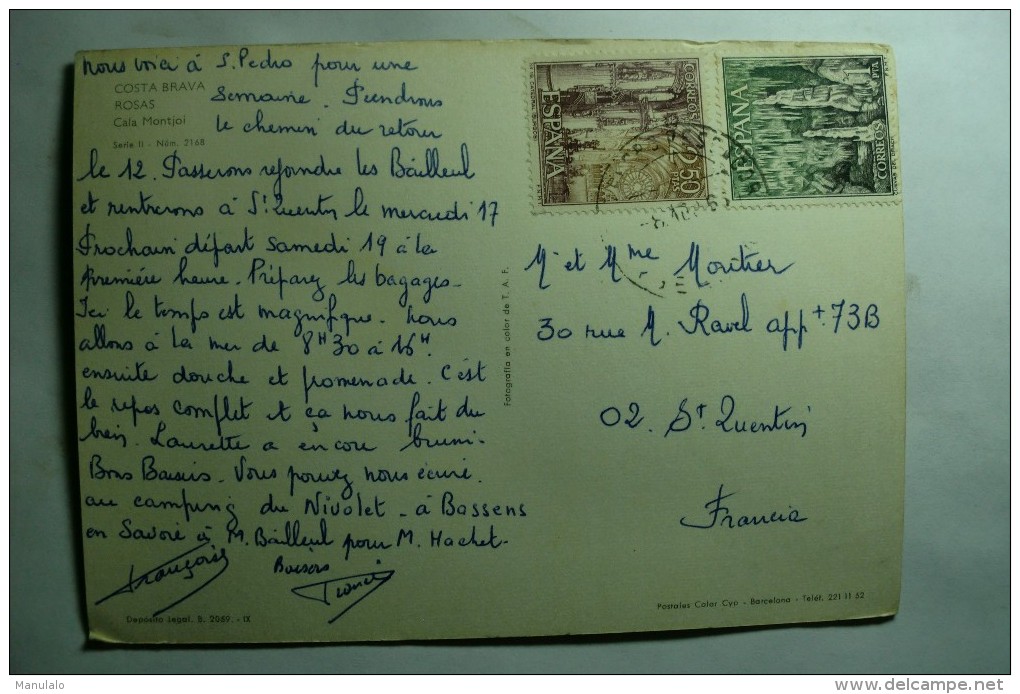 Nous voici à S. Pedro pour une
semaine. Prendrons
le chemin du retour
le 12. Passerons rejoindre les Bailleul
et rentrerons à St Quentin le mercredi 17
Prochain départ samedi 19 à la
première heure. Préparez les bagages-
Ici le temps est magnifique. nous
allons à la mer de 8H30 à 16H.
ensuite douche et promenade. C'est
le repos complet et ça nous fait du
bien. Laurette a encore bruni-
Bons Baisers. Vous pouvez nous écrire
au camping du Nivolet - à Bassens
en Savoie à M. Bailleul pour M. Hachet-
Françoise
Baisers
COSTA BRAVA
ROSAS
Cala Montjoi
Serie II - Núm. 2168
Depósito Legal. B. 2059. - IX
Fotografía en color de T. A. F.
CORREOS
ESPAÑA
2,50
PTAS
ESPAÑA
1 PTA
CORREOS
M. et Mme Moutier
30 rue M. Ravel appt 73B
02. St Quentin
Francia
Postales Color Cyp - Barcelona - Teléf. 221 11 52
Manulalo
delcampe.net